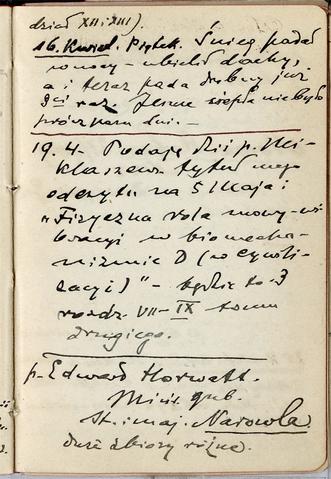 dział XII i XIII).
16. Kwiet. Piątek. Śnieg padał
w nocy – ubielił dachy,
a i teraz pada drobny już
raz. Jeszcze ciepła nie było
prócz paru dni. –
19. 4. Podaję dziś p. Mi-
klaszew. tytuł mego
odczytu na 5 Maja:
„Fizyczna rola mowy-wi-
bracyi w biomecha-
nizmie D (w Cywili-
zacyi)" – będzie to 3
rozdz. VII – IX tomu
drugiego.
p. Edward Horwatt.
Miń. gub.
St. i maj. Narowla
duże zbiory różne.